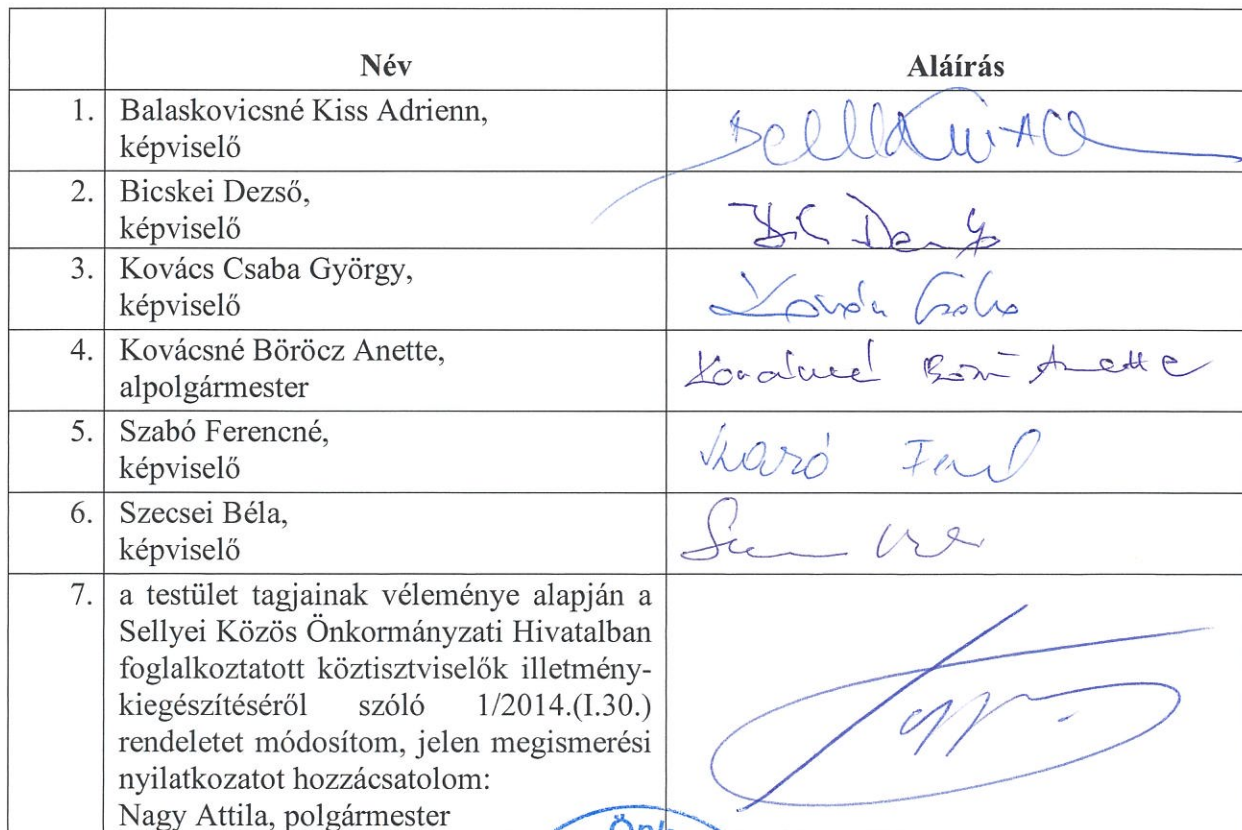 Név Aláírás
1. Balaskovicsné Kiss Adrienn,
képviselő
2. Bicskei Dezső,
képviselő
3. Kovács Csaba György,
képviselő
4. Kovácsné Böröcz Anette,
alpolgármester
Anette
5. Szabó Ferencné,
képviselő
6. Szecsei Béla,
képviselő
7. a testület tagjainak véleménye alapján a
Sellyei Közös Önkormányzati Hivatalban
foglalkoztatott köztisztviselők illetmény-
kiegészítéséről szóló 1/2014.(I.30.)
rendeletet módosítom, jelen megismerési
nyilatkozatot hozzácsatolom:
Nagy Attila, polgármester